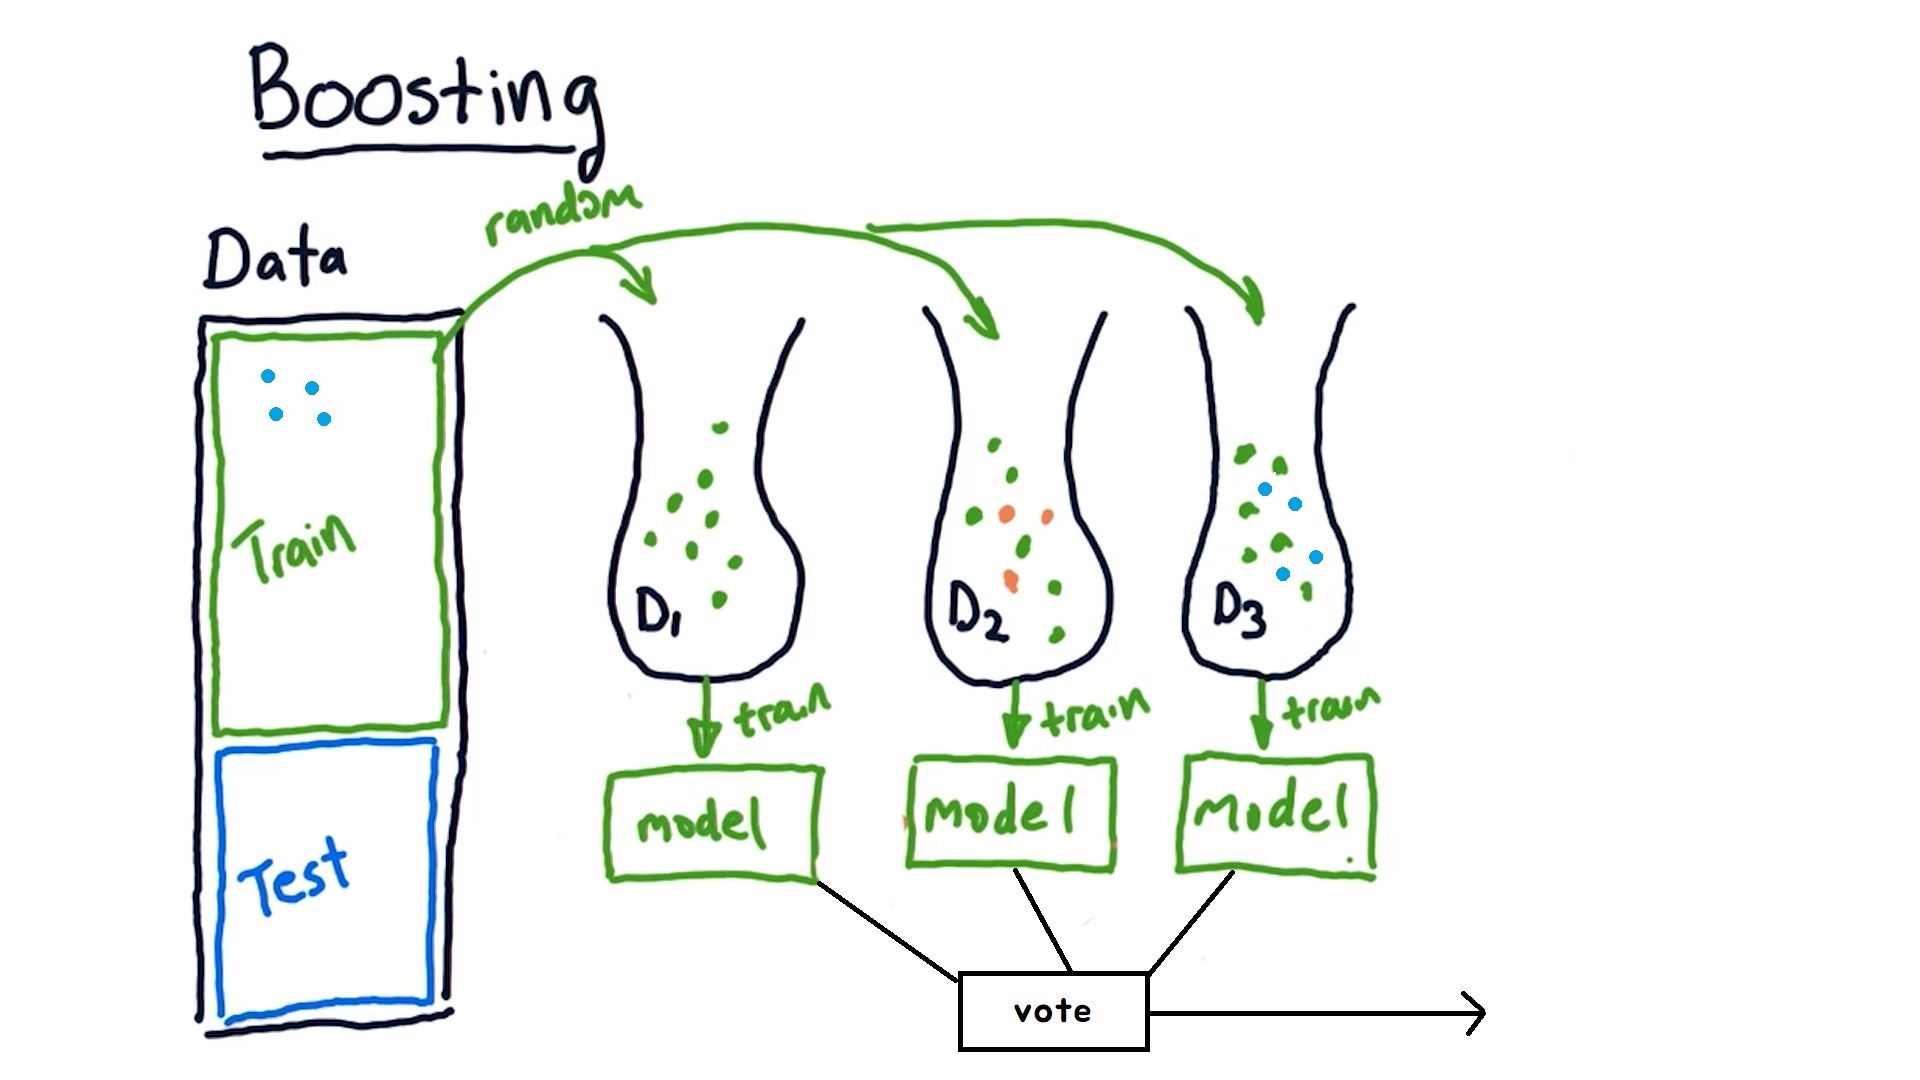 Boosting
random
Data
Train
Test
D1
D2
D3
train
train
train
model
model
model
vote